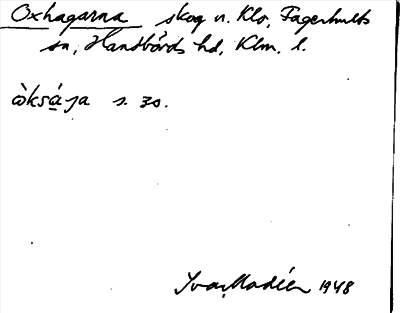 Oxhagarna skog n. Klo, Fagerhults
sn, Handbörds hd, Klm. l.
s. 30.
Ivar Modéer 1948